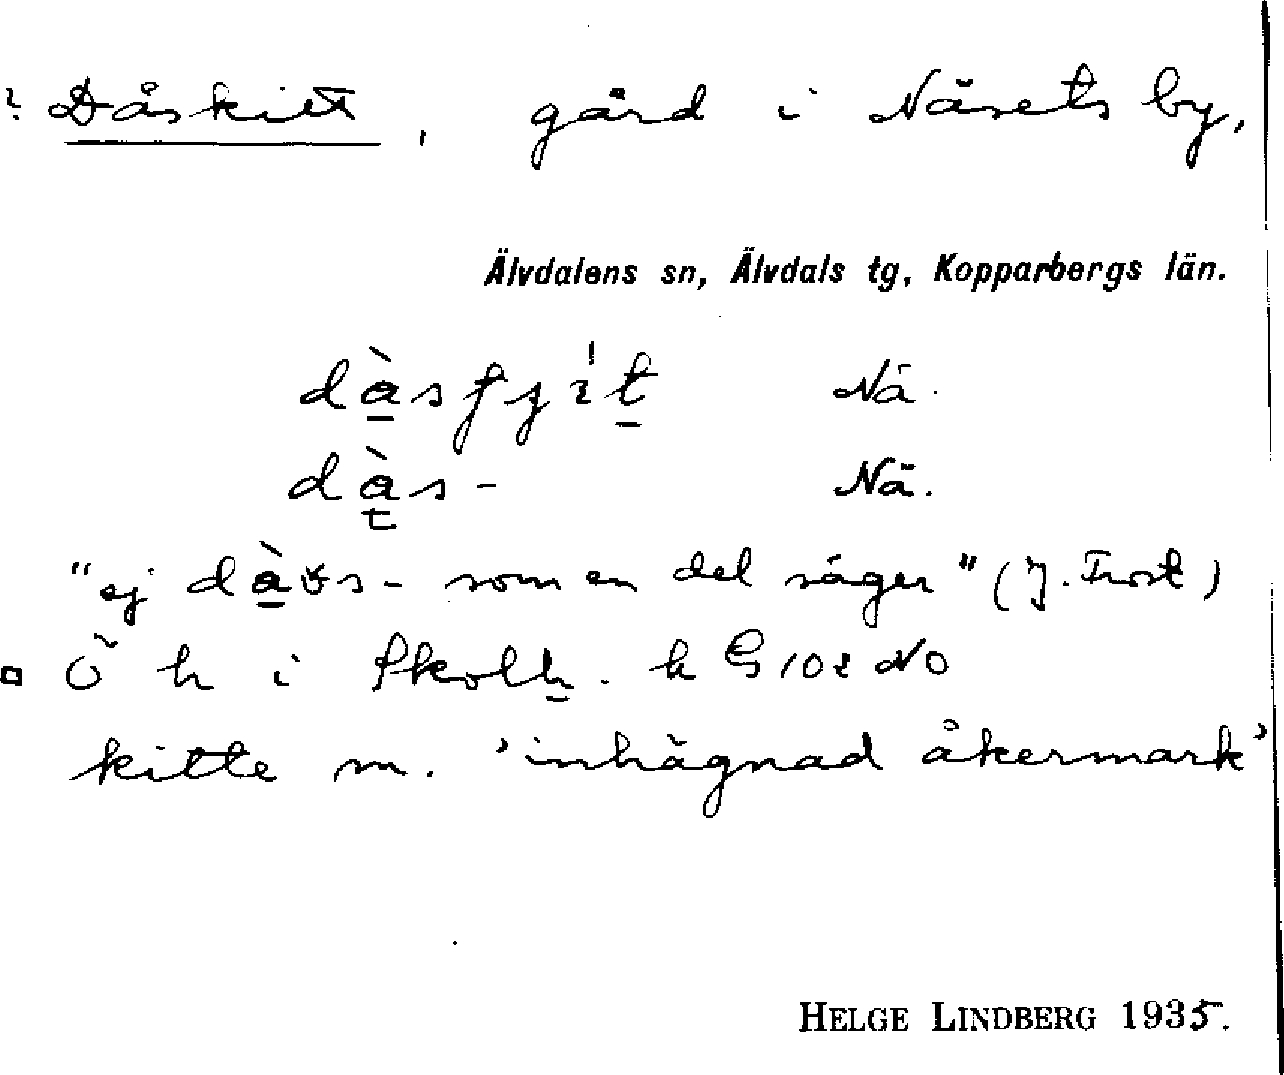 ? Dåskitt, gård i Näsets by,
Älvdalens sn, Älvdals tg, Kopparbergs län.
Nä.
dàs- Nä.
"ej dàʊs- som en del säger" (J. Frost)
Ö h i Skolh. k G 102 NO
kitte m. 'inhägnad åkermark'
HELGE LINDBERG 1935.